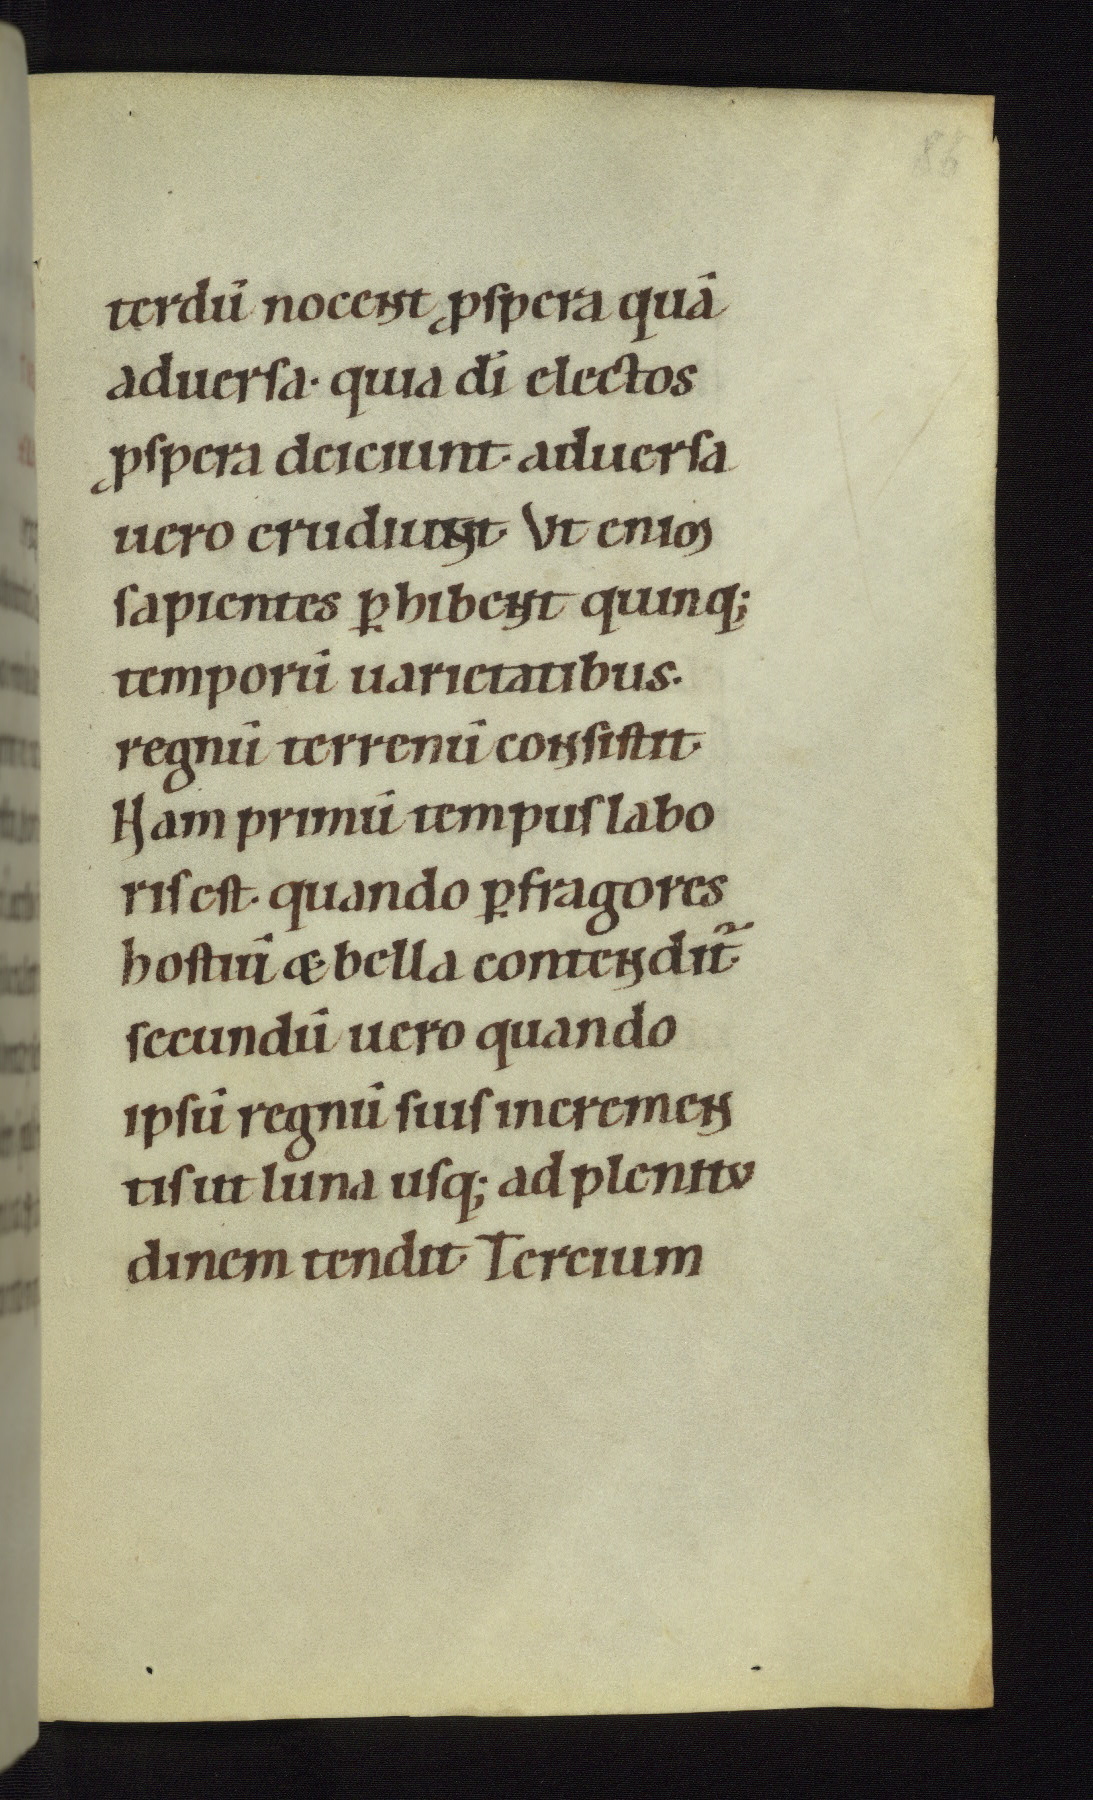 85
terdū nocent ꝓspera quā
aduersa· quia dī electos
ꝓspera deiciunt· aduersa
uero erudiunt· Vt enim
sapientes ꝑhibent quinq;
temporū uarietatibus·
regnū terrenū consistit·
Nam primū tempus labo
ris est· quando ꝑ fragores
hostiū & bella contendit᷑·
secundū uero quando
ipsū regnū suis incremen
tis ut luna usq; ad plenitu
dinem tendit· Tercium